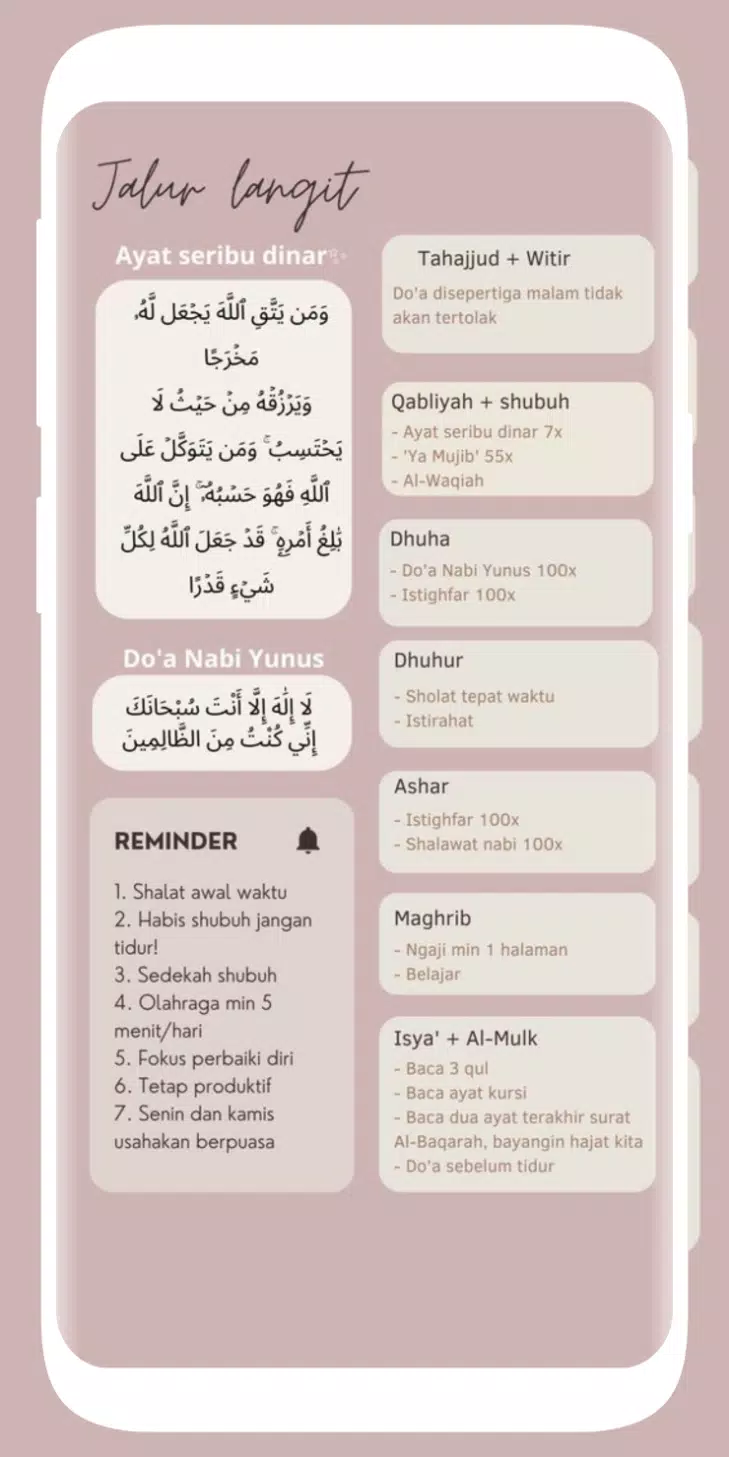 Jalur langit
Ayat seribu dinar✨
وَمَن يَتَّقِ ٱللَّهَ يَجْعَل لَّهُۥ
مَخْرَجًا
وَيَرْزُقْهُ مِنْ حَيْثُ لَا
يَحْتَسِبُ ۚ وَمَن يَتَوَكَّلْ عَلَى
ٱللَّهِ فَهُوَ حَسْبُهُۥٓ ۚ إِنَّ ٱللَّهَ
بَٰلِغُ أَمْرِهِۦ ۚ قَدْ جَعَلَ ٱللَّهُ لِكُلِّ
شَىْءٍ قَدْرًا
Do'a Nabi Yunus
لَا إِلَٰهَ إِلَّا أَنْتَ سُبْحَانَكَ
إِنِّي كُنْتُ مِنَ الظَّالِمِينَ
REMINDER
1. Shalat awal waktu
2. Habis shubuh jangan
tidur!
3. Sedekah shubuh
4. Olahraga min 5
menit/hari
5. Fokus perbaiki diri
6. Tetap produktif
7. Senin dan kamis
usahakan berpuasa
Tahajjud + Witir
Do'a disepertiga malam tidak
akan tertolak
Qabliyah + shubuh
- Ayat seribu dinar 7x
- 'Ya Mujib' 55x
- Al-Waqiah
Dhuha
- Do'a Nabi Yunus 100x
- Istighfar 100x
Dhuhur
- Sholat tepat waktu
- Istirahat
Ashar
- Istighfar 100x
- Shalawat nabi 100x
Maghrib
- Ngaji min 1 halaman
- Belajar
Isya' + Al-Mulk
- Baca 3 qul
- Baca ayat kursi
- Baca dua ayat terakhir surat
Al-Baqarah, bayangin hajat kita
- Do'a sebelum tidur